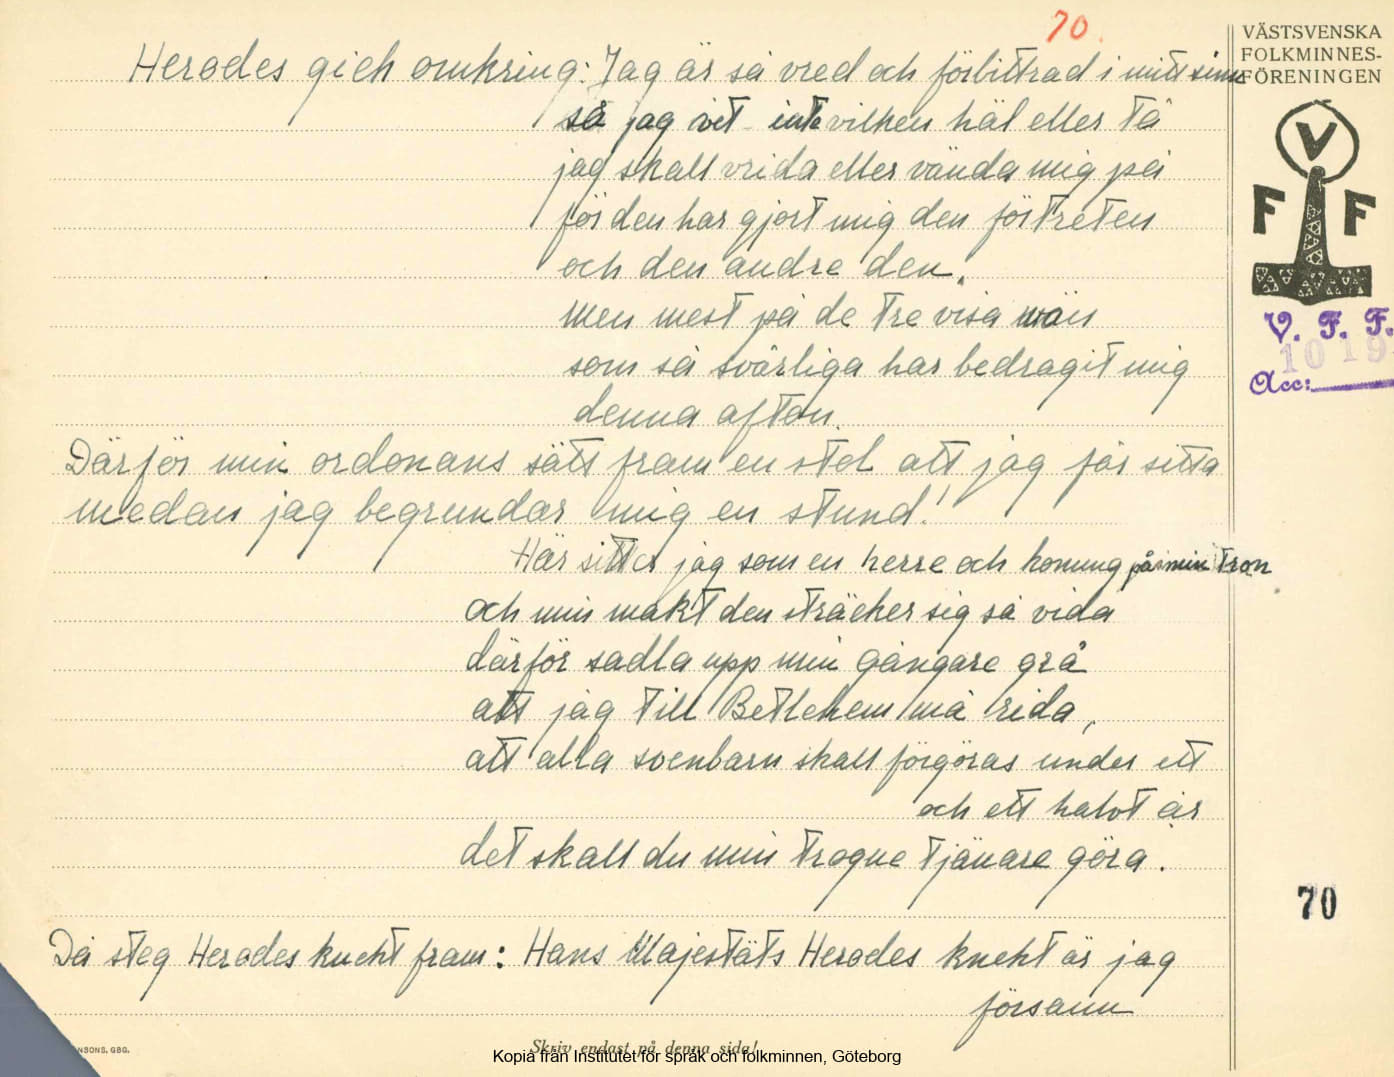 70.
VÄSTSVENSKA
FOLKMINNES-
FÖRENINGEN
V
F F
V. F. F.
10 19
Acc:
Herodes gick omkring: Jag är så vred och förbittrad i mitt sinne
så jag vet inte vilken häl eller tå
jag skall vrida eller vända mig på
för den har gjort mig den förtreten
och den andre den.
Men mest på de tre visa män
som så svårliga har bedragit mig
denna afton.
Därför min ordonans sätt fram en stol att jag får sitta
medan jag begrundar mig en stund!
Här sitter jag som en herre och konung på min tron
och min makt den sträcker sig så vida
därför sadla upp min gångare grå
att jag till Betlehem må rida,
att alla svenbarn skall förgöras under ett
och ett halvt år
det skall du min trogne tjänare göra.
70
Då steg Herodes knekt fram: Hans Majestäts Herodes knekt är jag
försann
NSONS, GBG.
Skriv endast på denna sida!
Kopia från Institutet för språk och folkminnen, Göteborg